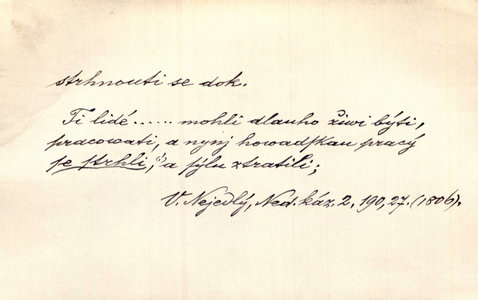 strhnouti se dok.
Ti lidé...... mohli dlauho žiwi býti,
pracowati, a nynj howadſkau pracý
ſe ſtrhli, a ſýlu ztratili;
V. Nejedlý, Ned. káz. 2, 190, 27. (1806).